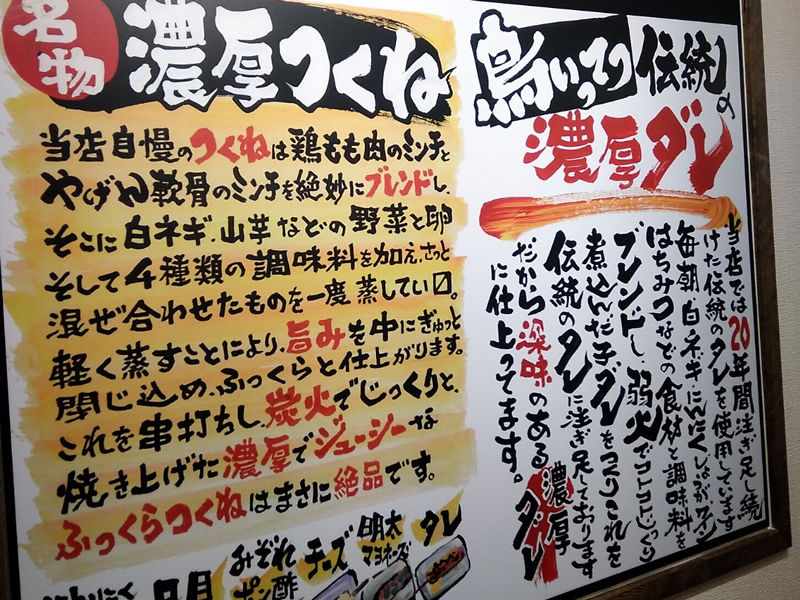 名物
濃厚つくね
当店自慢のつくねは鶏もも肉のミンチと
やげん軟骨のミンチを絶妙にブレンドし、
そこに白ネギ、山芋などの野菜と卵
そして4種類の調味料を加え、さっと
混ぜ合わせたものを一度蒸してい〼。
軽く蒸すことにより、旨みを中にぎゅっと
閉じ込め、ふっくらと仕上がります。
これを串打ちし、炭火でじっくりと、
焼き上げた濃厚でジューシーな
ふっくらつくねはまさに絶品です。
月
みぞれ
ポン酢
チーズ
明太
マヨネーズ
タレ
鳥いってつ伝統の
濃厚ダレ
当店では20年間注ぎ足し続
けた伝統のタレを使用しています
毎朝、白ネギ、にんにく、しょうが、ワイン
はちみつなどの食材と調味料を
ブレンドし、弱火でコトコトじっくり
煮込んだ子ダレをつくりこれを
伝統のタレに注ぎ足しております
だから深味のある濃厚ダレ
に仕上ってます。